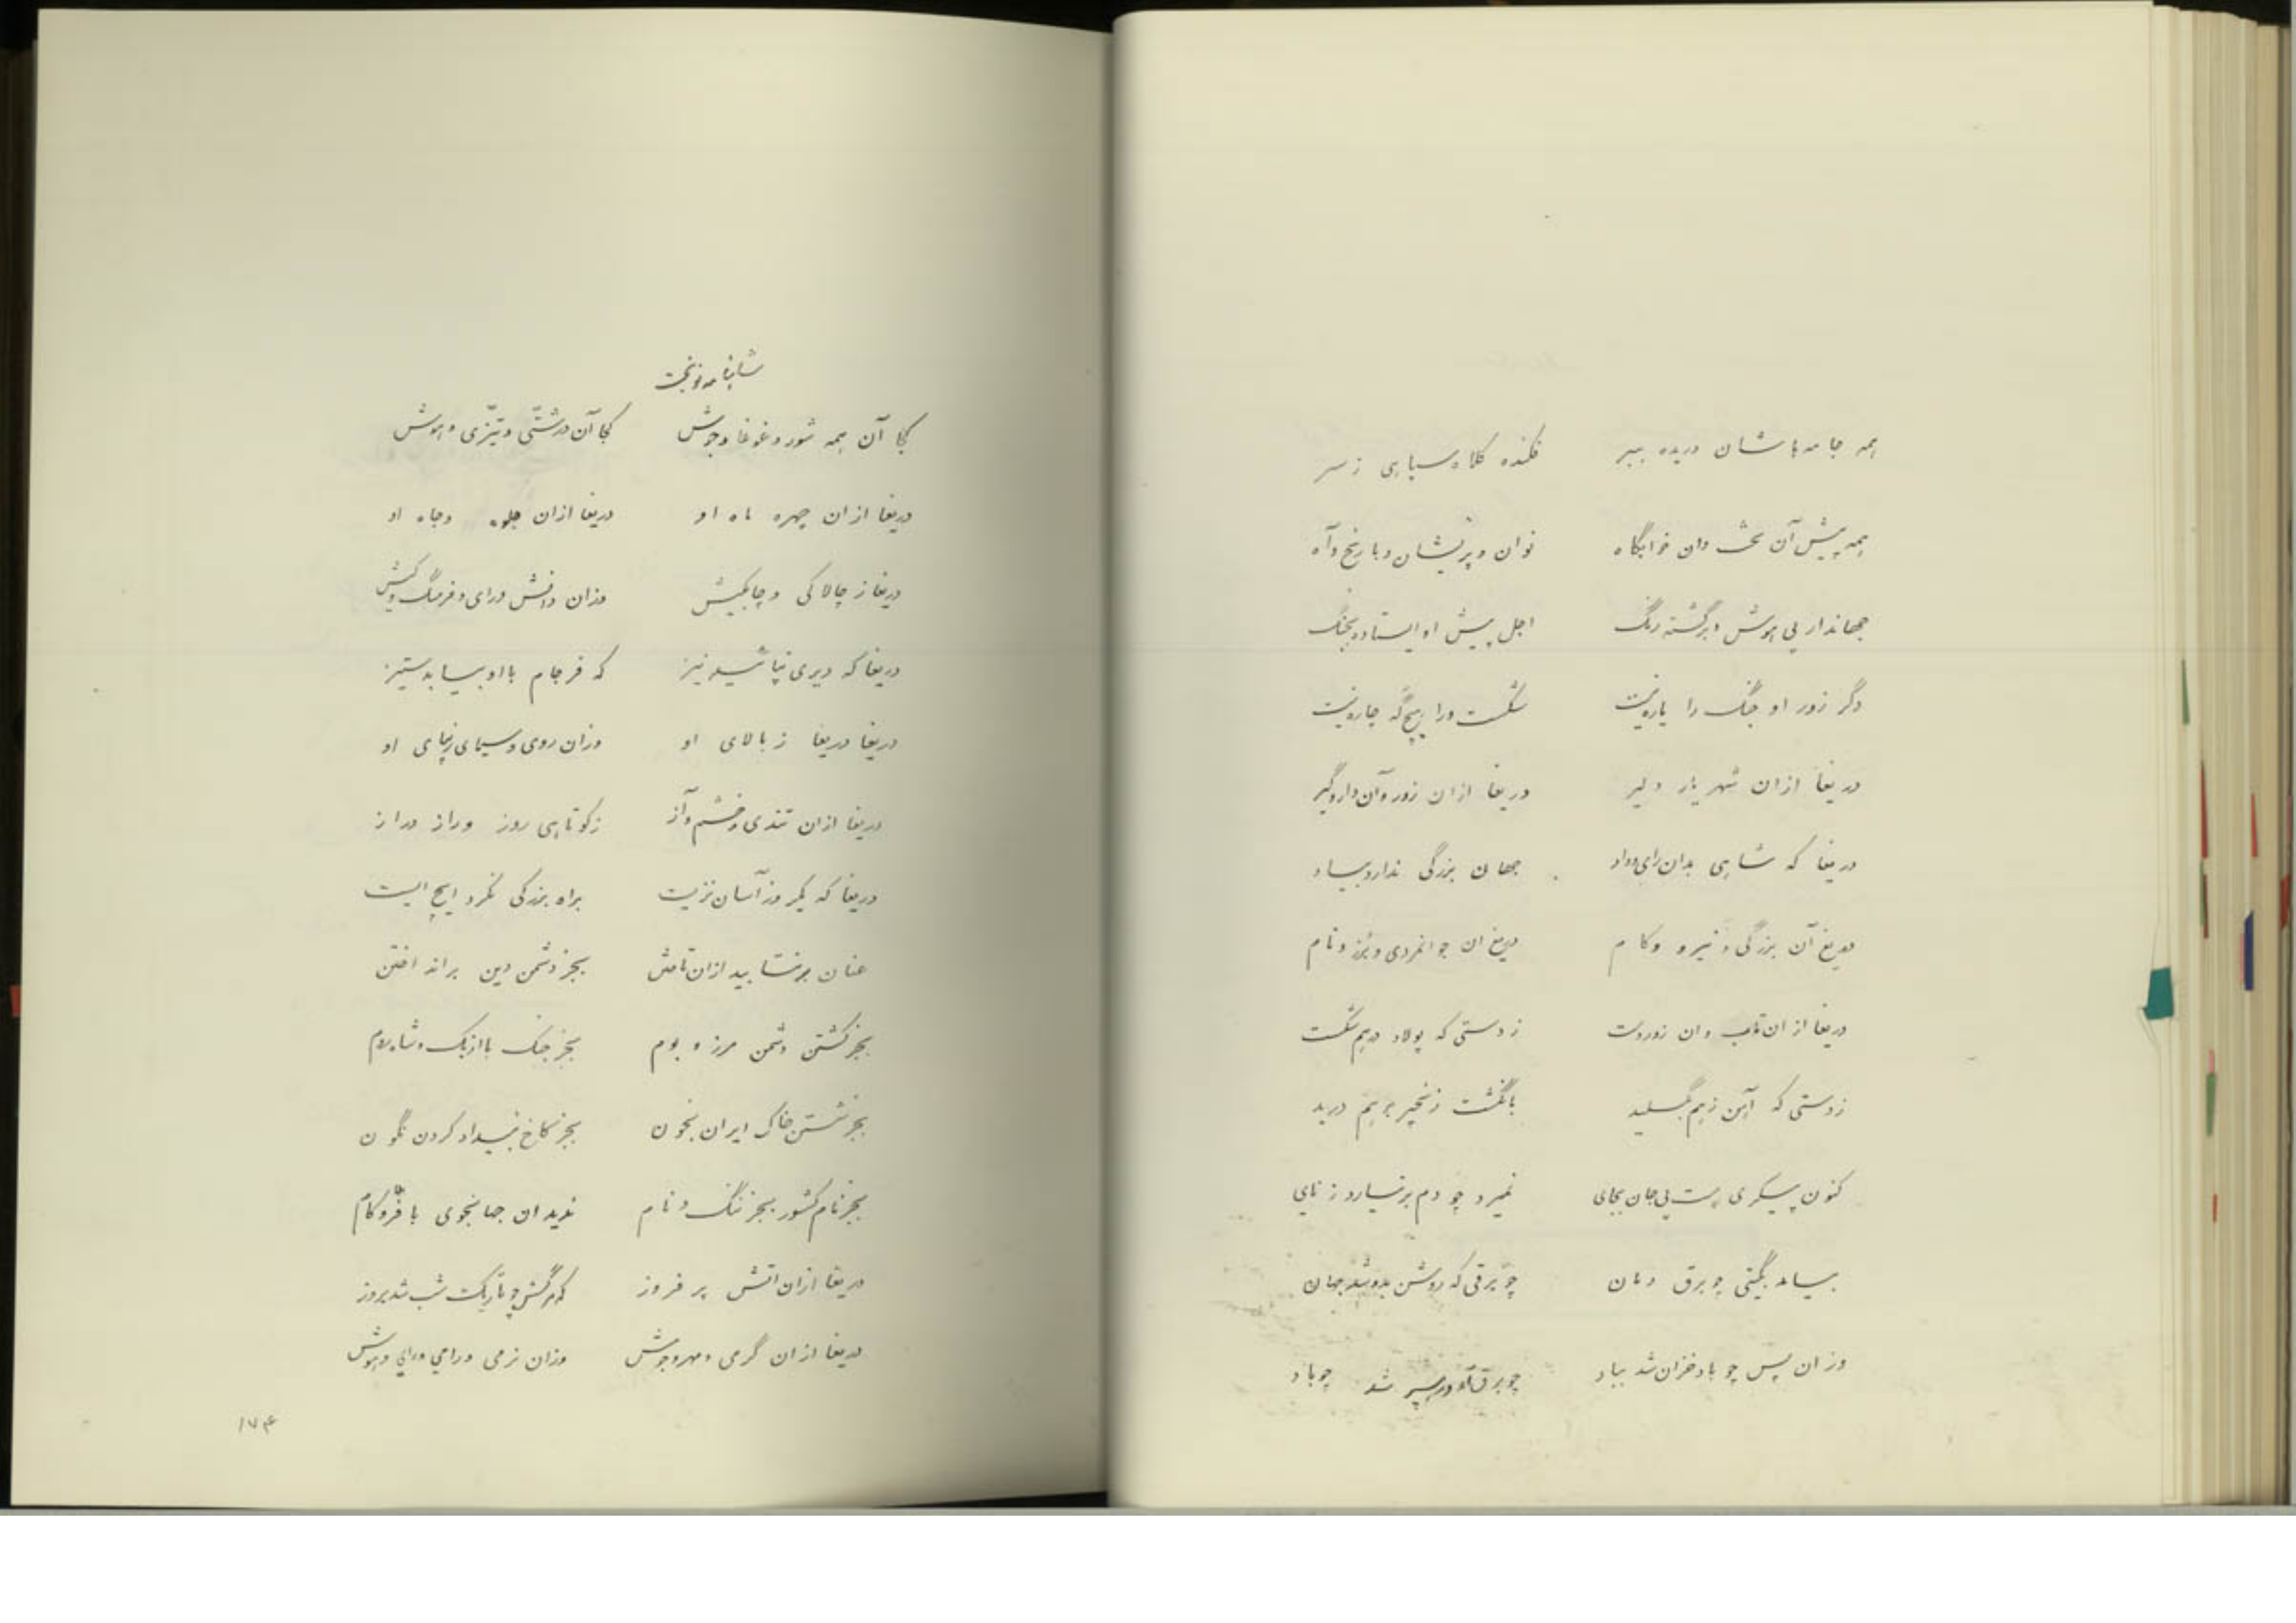 همه جامه‌هاشان دریده ببر فکنده کلاه سیاهی ز سر
همه پیش آن تخت وان خوابگاه نوان و پریشان و با رنج و آه
جهاندار بی هوش و برگشته رنگ اجل پیش او ایستاده بجنگ
دگر زور او جنگ را یاره نیست شکست ورا هیچگه چاره نیست
دریغا ازان شهریار دلیر دریغا ازان زور و آن دار و گیر
دریغا که شاهی بدان رای و داد جهان بزرگی ندارد بیاد
دریغ آن بزرگی و نیرو و کام دریغ ان جوانمردی و برز و نام
دریغا ازان تاب وان زور دست ز دستی که پولاد درهم شکست
ز دستی که آهن ز هم بگسلید بانگشت زنجیر بر هم درید
کنون پیکری هست بی جان بجای نمیرد چو دم برنیارد ز نای
بیامد بگیتی چو برق دمان چو برقی که روشن بدو شد جهان
وزان پس چو باد خزان شد بباد چو برق آمد و سپر شد چو باد
شاهنامه نوبخت
کجا آن همه شور و غوغا و جوش کجا آن درشتی و تیزی و هوش
دریغا ازان چهره ماه او دریغا ازان جلوه وجاه او
دریغا ز چالاکی و چابکیش وزان دانش و رای و فرهنگ و کیش
دریغا که دیری نپائید نیز که فرجام با او بیامد ستیز
دریغا دریغا ز بالای او وزان روی و سیمای زیبای او
دریغا ازان تندی و خشم و آز ز کوتاهی روز و راز دراز
دریغا که یکروز آسان نزیست براه بزرگی نکرد ایچ ایست
عنان برنتابید ازان تاختن بجز دشمن دین براند اختن
بجز کشتن دشمن مرز و بوم بجز جنگ با ازبک و شاه روم
بجز شستن خاک ایران بخون بجز کاخ بیداد کردن نگون
بجز نام کشور بجز ننگ و نام ندید ان جهانجوی با فرّ و کام
دریغا ازان اتش پر فروز که مرگش چو تاریک شب شد بروز
دریغا ازان گرمی و مهر و جوش وزان نرمی و رامی و رای و هوش
۱۷۴